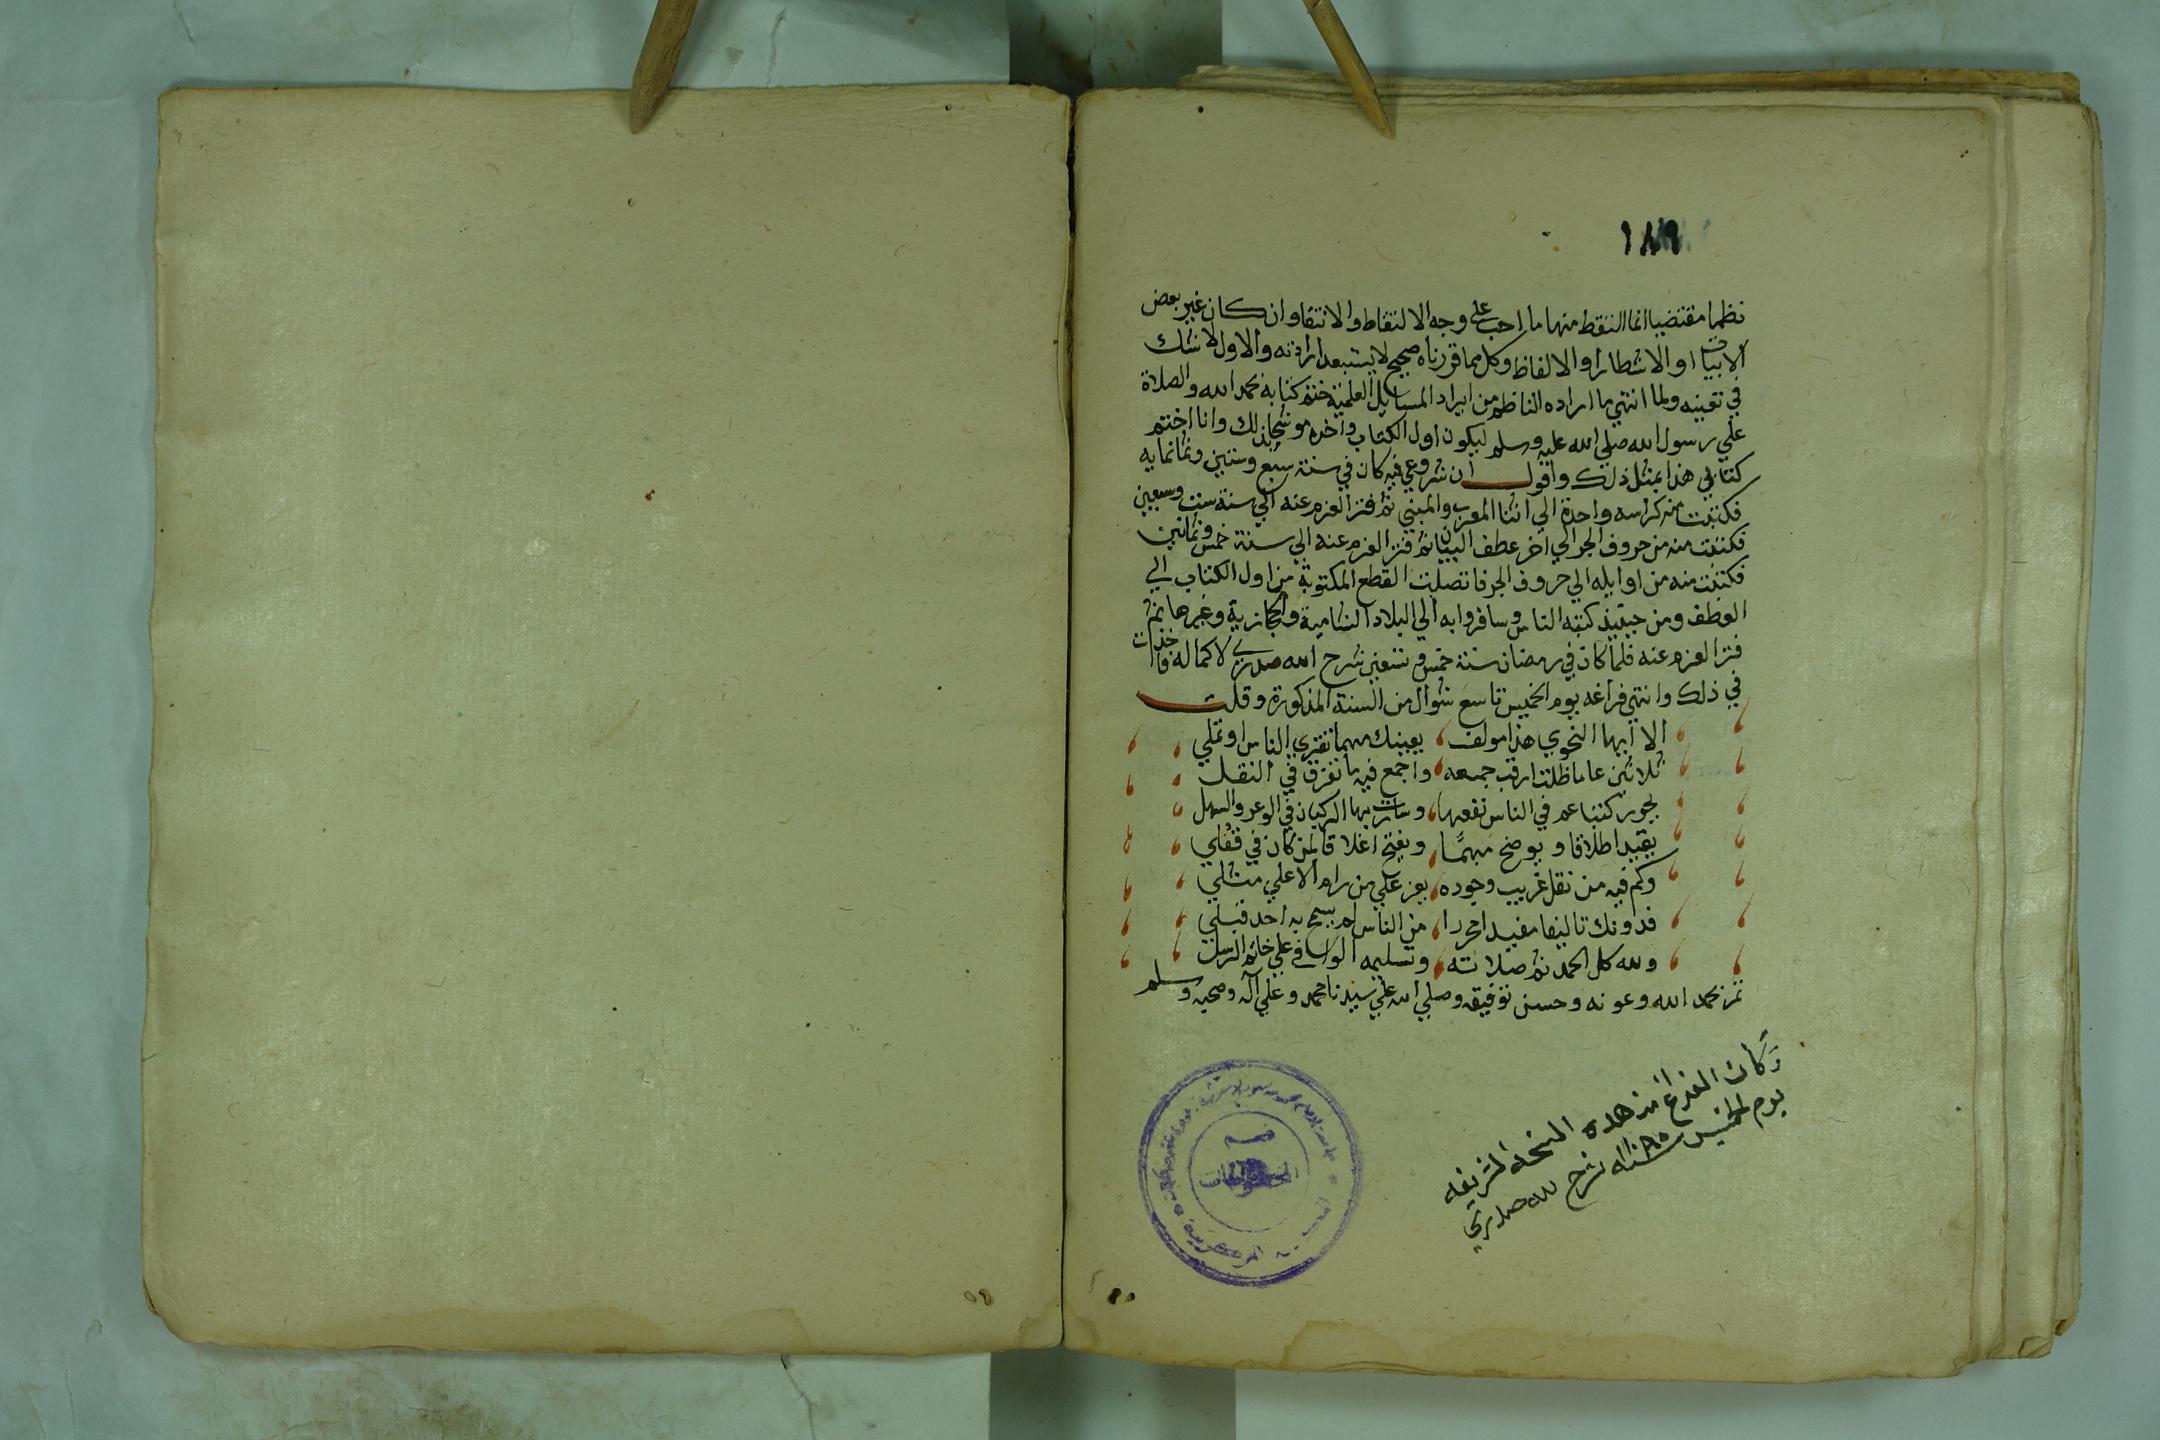 ١٨٩
نظما مقتضيا انما التقط منها ما احب على وجه الالتقاط والانتقا وان كان غير بعض
الابيات او الاشطار او الالفاظ وكل مما قررناه صحيح لا يستبعد ارادته والاول لا شك
في تعينه ولما انتهي ما اراده الناظم من ايراد المسايل العلمية ختم كتابه بحمد الله والصلاة
علي رسول الله صلي الله عليه وسلم ليكون اول الكتاب واخره موشحا بذلك وانا اختم
كتابي هذا بمثل ذلك واقول ان شروعي فيه كان في سنة سبع وستين وثمانمايه
فكتبت منه كراسه واحدة الي اثنا المعرب والمبني ثم فتر العزم عنه الي سنة ست وسبعين
فكتبت منه من حروف الجر الي اخر عطف البيان ثم فتر العزم عنه الي سنة خمس وثمانين
فكتبت منه من اوايله الي حروف الجر فاتصلت القطع المكتوبة من اول الكتاب الي
العطف ومن حينيذ كتبه الناس وسافروا به الي البلاد الشامية والحجازية وغيرها ثم
فتر العزم عنه فلما كان في رمضان سنة خمس وتسعين شرح الله صدري لاكماله واخذت
في ذلك وانتهي فراغه يوم الخميس تاسع شوال من السنة المذكورة وقلت
الا ايها النحوي هذا مولف يعينك مهما تقتري الناس او تملي
ثلاثين عاما ظلت ارقب جمعه واجمع فيه ما تفرق في النقل
يحوز كتبا عم في الناس نفعها وسارت بها الركبان في الوعر والسهل
يقيد اطلاقا ويوضح مبهما ويفتح اغلاقا لمن كان في قفلي
وكم فيه من نقل غريب وجوده يعز علي من رام الا علي مثلي
فدونك تاليفا مفيدا محررا من الناس لم يسمح به احد قبلي
ولله كل الحمد ثم صلاته وتسليمه الوافي علي خاتم الرسل
تم بحمد الله وعونه وحسن توفيقه وصلي الله علي سيدنا محمد وعلي آله وصحبه وسلم
وكان الفراغ من هذه النسخه الشريفه
يوم الخميس سنة شرح الله صدري
قسم
المخطوطات